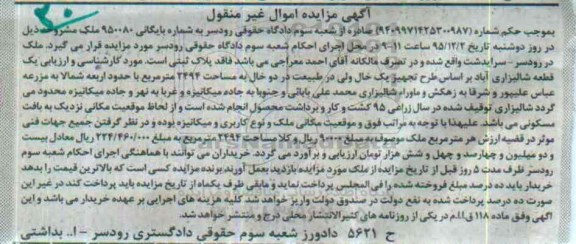 آگهی مزایده اموال غیر منقول
بموجب حکم شماره (۹۴۰۹۹۷۱۴۲۵۳۰۰۹۸۷) صادره از شعبه سوم دادگاه حقوقی رودسر به شماره بایگانی ۹۵۰۰۸۰ ملک مشروحه ذیل
در روز دوشنبه تاریخ ۹۵/۱۲/۲ ساعت ۱۱-۹ در محل اجرای احکام شعبه سوم دادگاه حقوقی رودسر مورد مزایده قرار می گیرد. ملک
در رودسر - سرابدشت واقع شده و در تصرف مالکانه آقای احمد معراجی می باشد فاقد پلاک ثبتی است. مورد کارشناسی و ارزیابی یک
قطعه شالیزاری آباد بر اساس طرح تجهیز یک خال ولی در طبیعت در دو خال به مساحت ۲۴۹۴ مترمربع با حدود اربعه شمالا به مزرعه
عباس علیپور و شرقا به زهکش و ماوراء شالیزاری محمد علی بابائی و جنوبا به جاده میکانیزه و غربا به نهر و جاده میکانیزه محدود می
گردد شالیزاری توقیف شده در سال زراعی ۹۵ کشت و کار و برداشت محصول انجام شده است و از لحاظ موقعیت مکانی نزدیک به بافت
مسکونی می باشد. علیهذا با توجه به مراتب فوق و موقعیت مکانی ملک و نوع کاربری و میکانیزه بوده و در نظر گرفتن جمیع جهات فنی
موثر در قضیه ارزش هر مترمربع ملک موصوف به مبلغ ۹۴۰۰۰ ریال و کلا بمساحت ۲۴۹۴ مترمربع به مبلغ ۲۳۴/۴۶۰/۰۰۰ ریال معادل بیست
و دو میلیون و چهارصد و چهل و شش هزار تومان ارزیابی و برآورد می گردد. خریداران می توانند با هماهنگی اجرای احکام شعبه سوم
رودسر ظرف مدت ۵ روز قبل از تاریخ مزایده از ملک مورد مزایده بازدید بعمل آورند برنده مزایده کسی است که بالاترین قیمت را بدهد
خریدار باید ده درصد مبلغ فروخته شده را فی المجلس پرداخت نماید و مابقی ظرف یکماه از تاریخ مزایده باید پرداخت کند در غیر این
صورت ده درصد پرداخت شده به نفع دولت در صندوق دولت واریز خواهد شد کلیه هزینه های اجرایی بر عهده خریدار می باشد و این
آگهی وفق ماده ۱۱۸ ق.ا.م در یکی از روزنامه های کثیرالانتشار محلی درج و منتشر خواهد شد.
ح ۵۶۲۱ دادورز شعبه سوم حقوقی دادگستری رودسر - ا. بداشتی